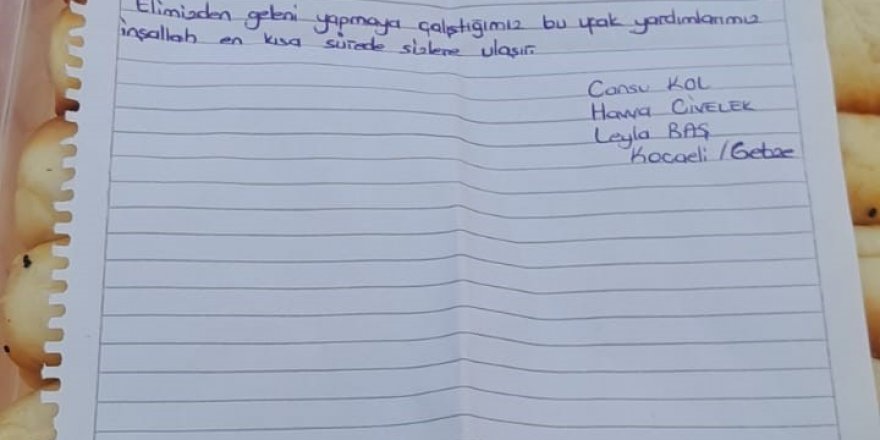 Elimizden geleni yapmaya çalıştığımız bu ufak yardımlarımız
inşallah en kısa sürede sizlere ulaşır.
Cansu KOL
Havva CİVELEK
Leyla BAŞ
Kocaeli / Gebze